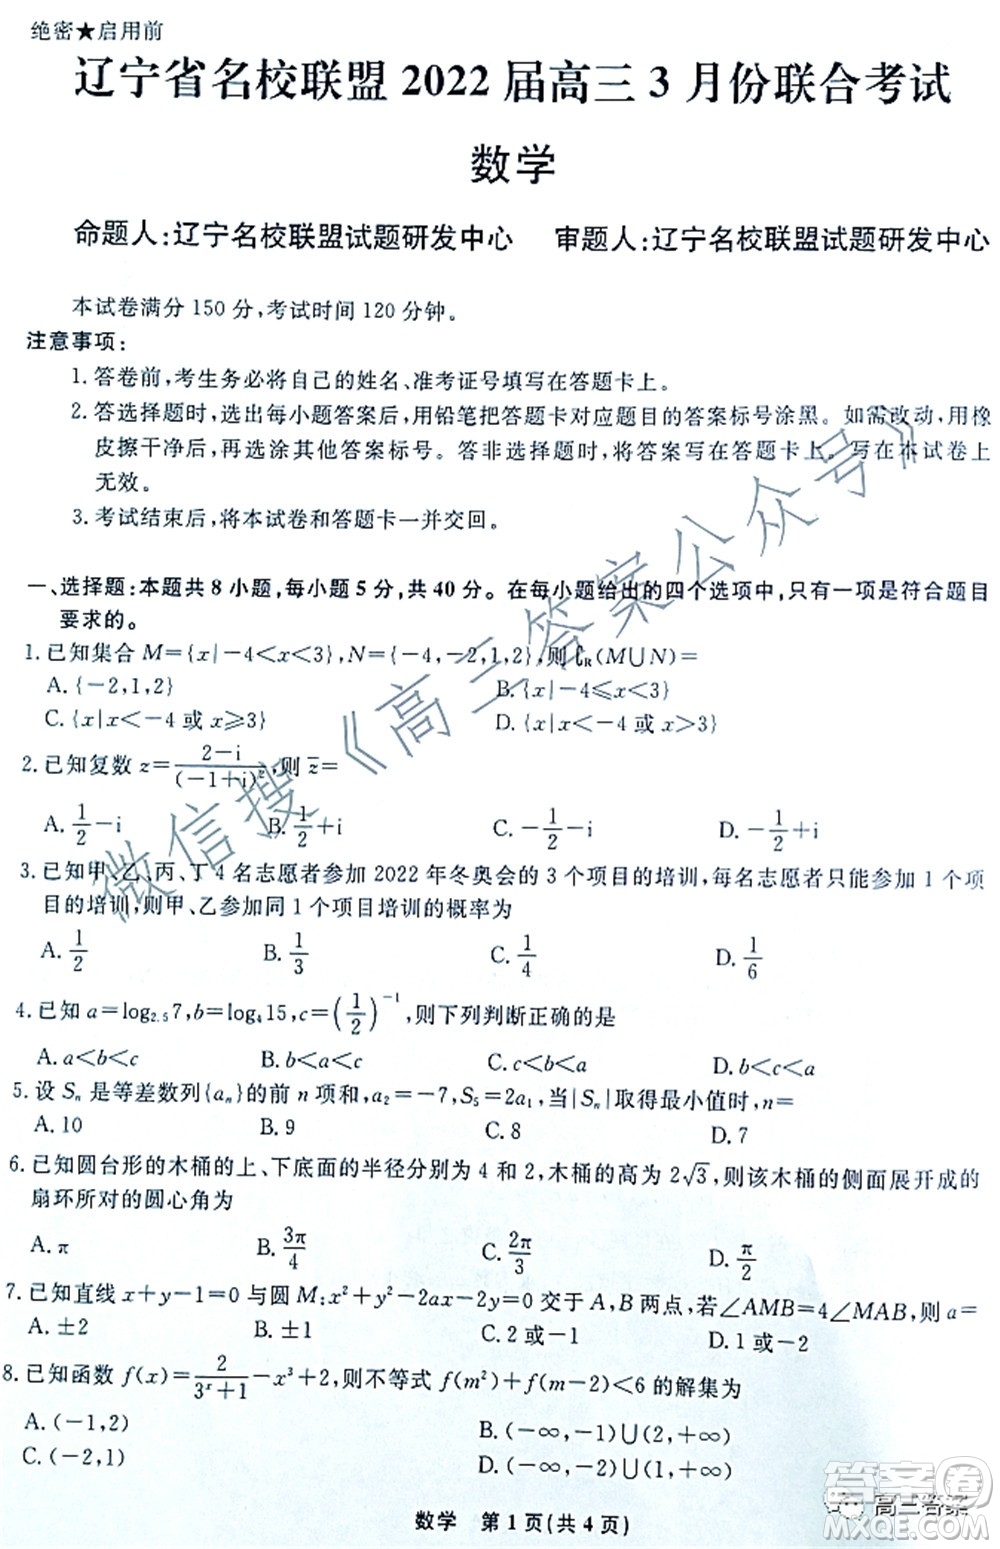 绝密★启用前
辽宁省名校联盟 2022 届高三 3 月份联合考试
数学
命题人:辽宁名校联盟试题研发中心 审题人:辽宁名校联盟试题研发中心
本试卷满分 150 分,考试时间 120 分钟。
注意事项:
1. 答卷前,考生务必将自己的姓名、准考证号填写在答题卡上。
2. 答选择题时,选出每小题答案后,用铅笔把答题卡对应题目的答案标号涂黑。如需改动,用橡
皮擦干净后,再选涂其他答案标号。答非选择题时,将答案写在答题卡上。写在本试卷上
无效。
3. 考试结束后,将本试卷和答题卡一并交回。
一、选择题:本题共 8 小题,每小题 5 分,共 40 分。在每小题给出的四个选项中,只有一项是符合题目
要求的。
1. 已知集合 M={x|-4<x<3},N={-4,-2,1,2},则∁R(M∪N)=
A. {-2,1,2} B. {x|-4≤x<3}
C. {x|x<-4 或 x≥3} D. {x|x<-4 或 x>3}
2. 已知复数 z=(2-i)/(-1+i)²,则 z̄=
A. 1/2-i B. 1/2+i C. -1/2-i D. -1/2+i
3. 已知甲、乙、丙、丁 4 名志愿者参加 2022 年冬奥会的 3 个项目的培训,每名志愿者只能参加 1 个项
目的培训,则甲、乙参加同 1 个项目培训的概率为
A. 1/2 B. 1/3 C. 1/4 D. 1/6
4. 已知 a=log₂.₅7,b=log₄15,c=(1/2)⁻¹,则下列判断正确的是
A. a<b<c B. b<a<c C. c<b<a D. b<c<a
5. 设 Sₙ 是等差数列{aₙ}的前 n 项和,a₂=-7,S₅=2a₁,当|Sₙ|取得最小值时,n=
A. 10 B. 9 C. 8 D. 7
6. 已知圆台形的木桶的上、下底面的半径分别为 4 和 2,木桶的高为 2√3,则该木桶的侧面展开成的
扇环所对的圆心角为
A. π B. 3π/4 C. 2π/3 D. π/2
7. 已知直线 x+y-1=0 与圆 M:x²+y²-2ax-2y=0 交于 A,B 两点,若∠AMB=4∠MAB,则 a=
A. ±2 B. ±1 C. 2 或-1 D. 1 或-2
8. 已知函数 f(x)=2/(3ˣ+1)-x³+2,则不等式 f(m²)+f(m-2)<6 的解集为
A. (-1,2) B. (-∞,-1)∪(2,+∞)
C. (-2,1) D. (-∞,-2)∪(1,+∞)
数学 第 1 页(共 4 页)
微信搜《高三答案公众号》
高三答案
答案卷
MXQE.COM